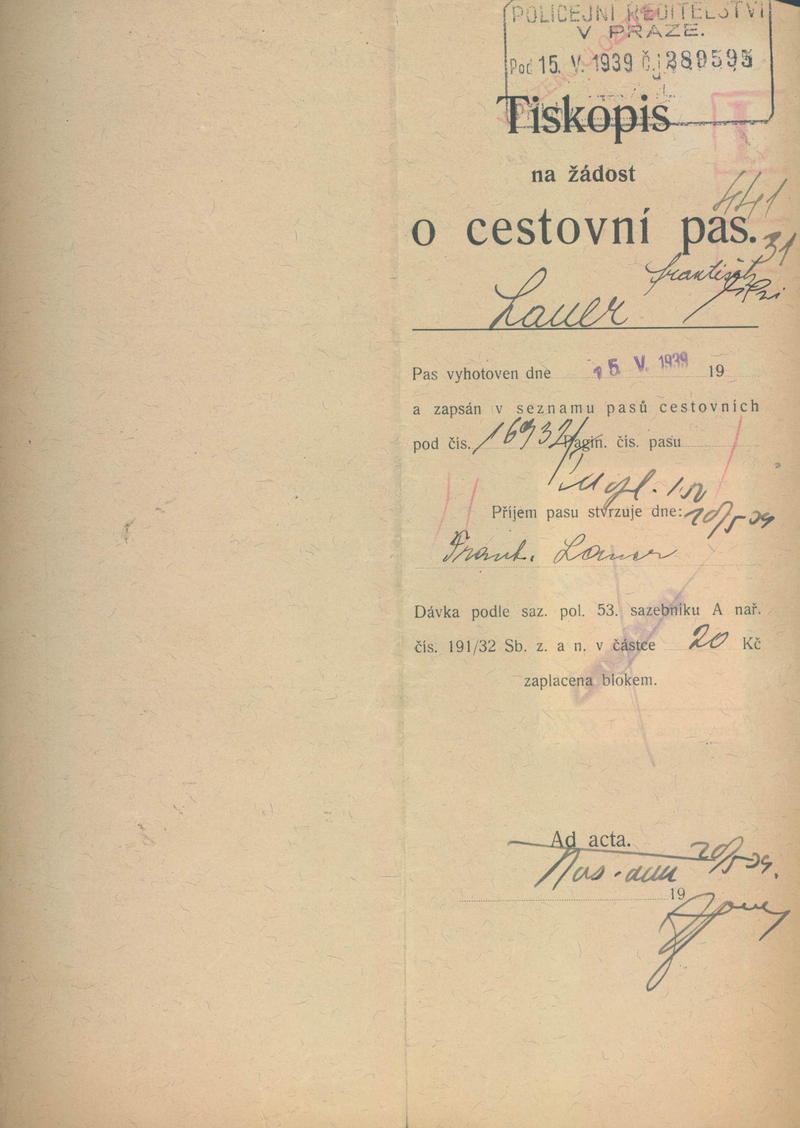 POLICEJNÍ ŘEDITELSTVÍ
V PRAZE.
Pod 15. V. 1939 č.j. 289595
Tiskopis
na žádost
441
o cestovní pas.
31
František
Lauer
Pas vyhotoven dne 15 V. 1939 19
a zapsán v seznamu pasů cestovních
pod čís. 16932/ Pagin. čís. pasu
Příjem pasu stvrzuje dne: 20/5 39
Frant. Lauer
Dávka podle saz. pol. 53. sazebníku A nař.
čís. 191/32 Sb. z. a n. v částce 20 Kč
zaplacena blokem.
Ad acta. 20/5 39.
19